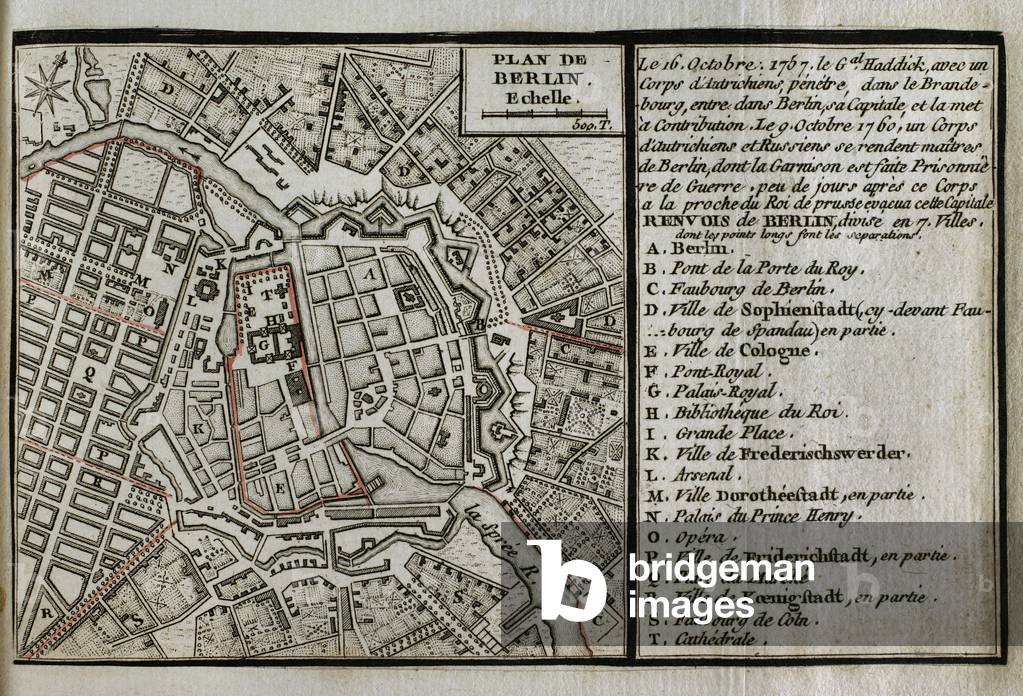 PLAN DE
BERLIN.
Echelle.
500.T.
Le 16. Octobre. 1757. le Gal Haddick, avec un
Corps d'Autrichiens, pénétre, dans le Brande-
bourg, entre dans Berlin, sa Capitale, et la met
à Contribution. Le 9. Octobre 1760, un Corps
d'autrichiens et Russiens se rendent maîtres
de Berlin, dont la Garnison est faite Prisonnié-
re de Guerre, peu de jours aprés ce Corps
a la proche du Roi de prusse évacua cette Capitale
RENVOIS de BERLIN, divisé en 7. Villes.
dont les points longs font les separations.
A. Berlin.
B. Pont de la Porte du Roy.
C. Faubourg de Berlin.
D. Ville de Sophienstadt (cy-devant Fau-
bourg de Spandau) en partie.
E. Ville de Cologne.
F. Pont-Royal.
G. Palais-Royal.
H. Bibliothéque du Roi.
I. Grande Place.
K. Ville de Frederischswerder.
L. Arsenal.
M. Ville Dorothéestadt, en partie.
N. Palais du Prince Henry.
O. Opéra.
P. Ville de Friderichstadt, en partie.
R. Ville de Kœnigstadt, en partie.
S. Faubourg de Coln.
T. Cathédrale.
la Sprée R.
bridgeman
images
b